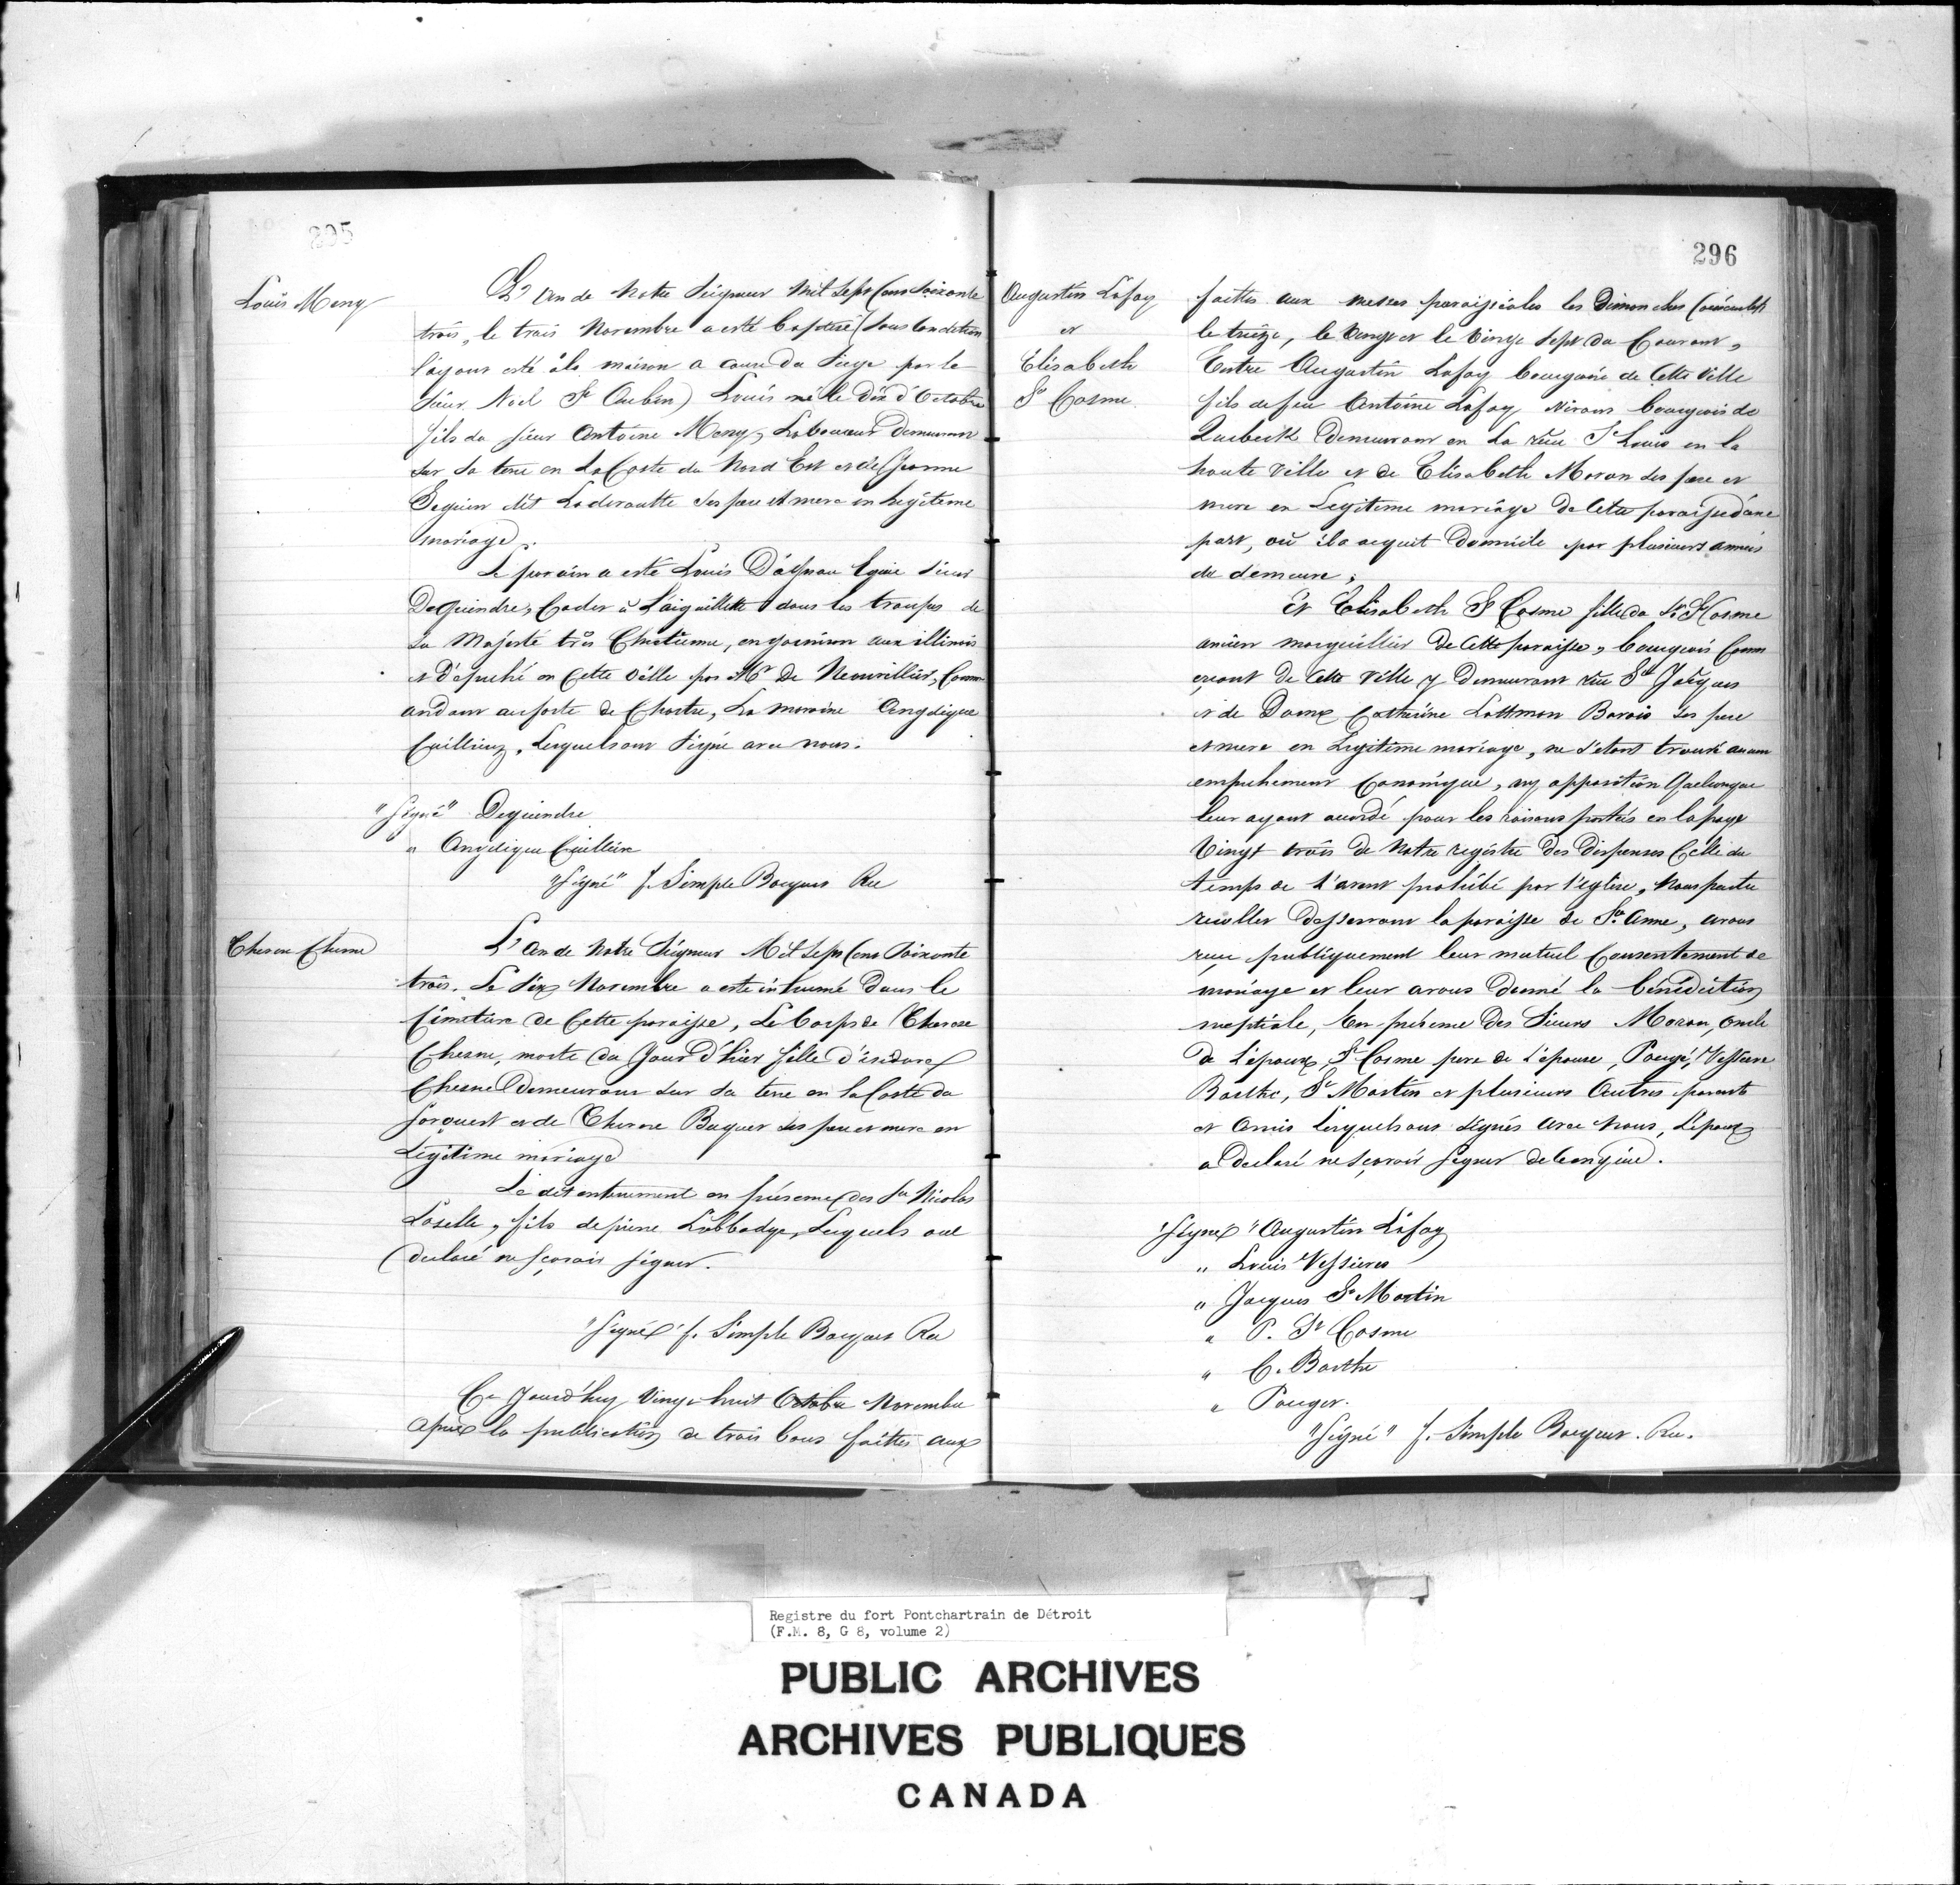 295
Louis Meny
L'an de Notre Seigneur Mil Sept Cens Soixante
trois, le trois Novembre a esté baptisé (sous Condition
l'ayant esté à la maison a cause du Siege par le
Sieur Noël St Aubin) Louis né le dix d'Octobre
fils du sieur Antoine Meny, Laboureur Demeurant
sur sa terre en La Coste du Nord Est et de Jeanne
Seguin dit Laderoutte ses pere et mere en legitime
mariage.
Le parain a esté Louis Dagneau Sieur
Dequindre, Cadet à L'aiguillette dans les troupes de
Sa Majesté très Chretienne, en garnison aux illinois
et Dépuché en Cette Ville par Mr De Neuvillier, Comm
andant au forte de Chartre, La maraine Angelique
Cuilliery, Lesquels ont signé avec nous.
"Signé" Dequindre
" Angelique Cuillere
"Signé" f. Simple Bocquet Rec
Therese Chesne
L'an de Notre Seigneur Mil Sept Cens Soixante
trois. Le Six Novembre a esté inhumé Dans le
Cimetiere de Cette paroisse, Le Corps de Therese
Chesne, morte du Jour D'hier fille d'isidore
Chesne Demeurant sur sa terre en la Coste du
Sorouest et de Therese Bequet ses pere et mere en
Legitime mariage
Le dit enterrement en présence des Srs Nicolas
Laselle, fils de pierre Labbadye, Lesquels ont
declaré ne sçavoir signer.
"Signé" f. Simple Bocquet Rec
Ce Jourd'huy Vingt huit Octobre Novembre
après la publication de trois bans faittes aux
296
Augustin Lafoy
et
Élisabeth
St Cosme
faittes aux messes paroissiales les Dimanches Consécutifs
le treize, le Vingt et le Vingt Sept du Courant,
Entre Augustin Lafoy bourgeois de Cette Ville
fils de feu Antoine Lafoy Vivant bourgeois de
Quebeck Demeurant en La rüe St Louis en la
haute Ville et de Elisabeth Moran ses pere et
mere en Legitime mariage De Cette paroisse d'une
part, où il a acquit Domicile par plusieurs années
de demeure;
Et Elisabeth St Cosme fille du Sr St Cosme
ancien marguillier De Cette paroisse, bourgeois Comm
erçant de Cette Ville y Demeurant rüe St Jacques
et de Dame Catherine Lottman Barois ses pere
et mere en Legitime mariage, ne s'etant trouvé aucun
empechement Canonique, ny opposition Quelconque
leur ayant accordé pour les raisons portées en la page
Vingt trois de Notre registre Des Dispenses Celle du
temps de l'avent prohibé par l'eglise, Nous pretre
recollet Desservant la paroisse de Ste Anne, avons
reçu publiquement leur mutuel Consentement de
mariage et leur avons donné la bénédiction
nuptiale, En présence Des Sieurs Moran, oncle
de l'époux, St Cosme pere de l'epouse, Pougé, Vessiere
Barthe, St Martin et plusieurs Autres parents
et Amis Lesquels ont signés avec Nous, L'épouse
a Declaré ne sçavoir signer
"Signé" Augustin Lafoy
" Louis Vessieres
" Jacques St Martin
" P. St Cosme
" C. Barthe
" Pouget.
"Signé" f. Simple Bocquet. Rec.
Registre du fort Pontchartrain de Détroit
(F.M. 8, G 8, volume 2)
PUBLIC ARCHIVES
ARCHIVES PUBLIQUES
CANADA